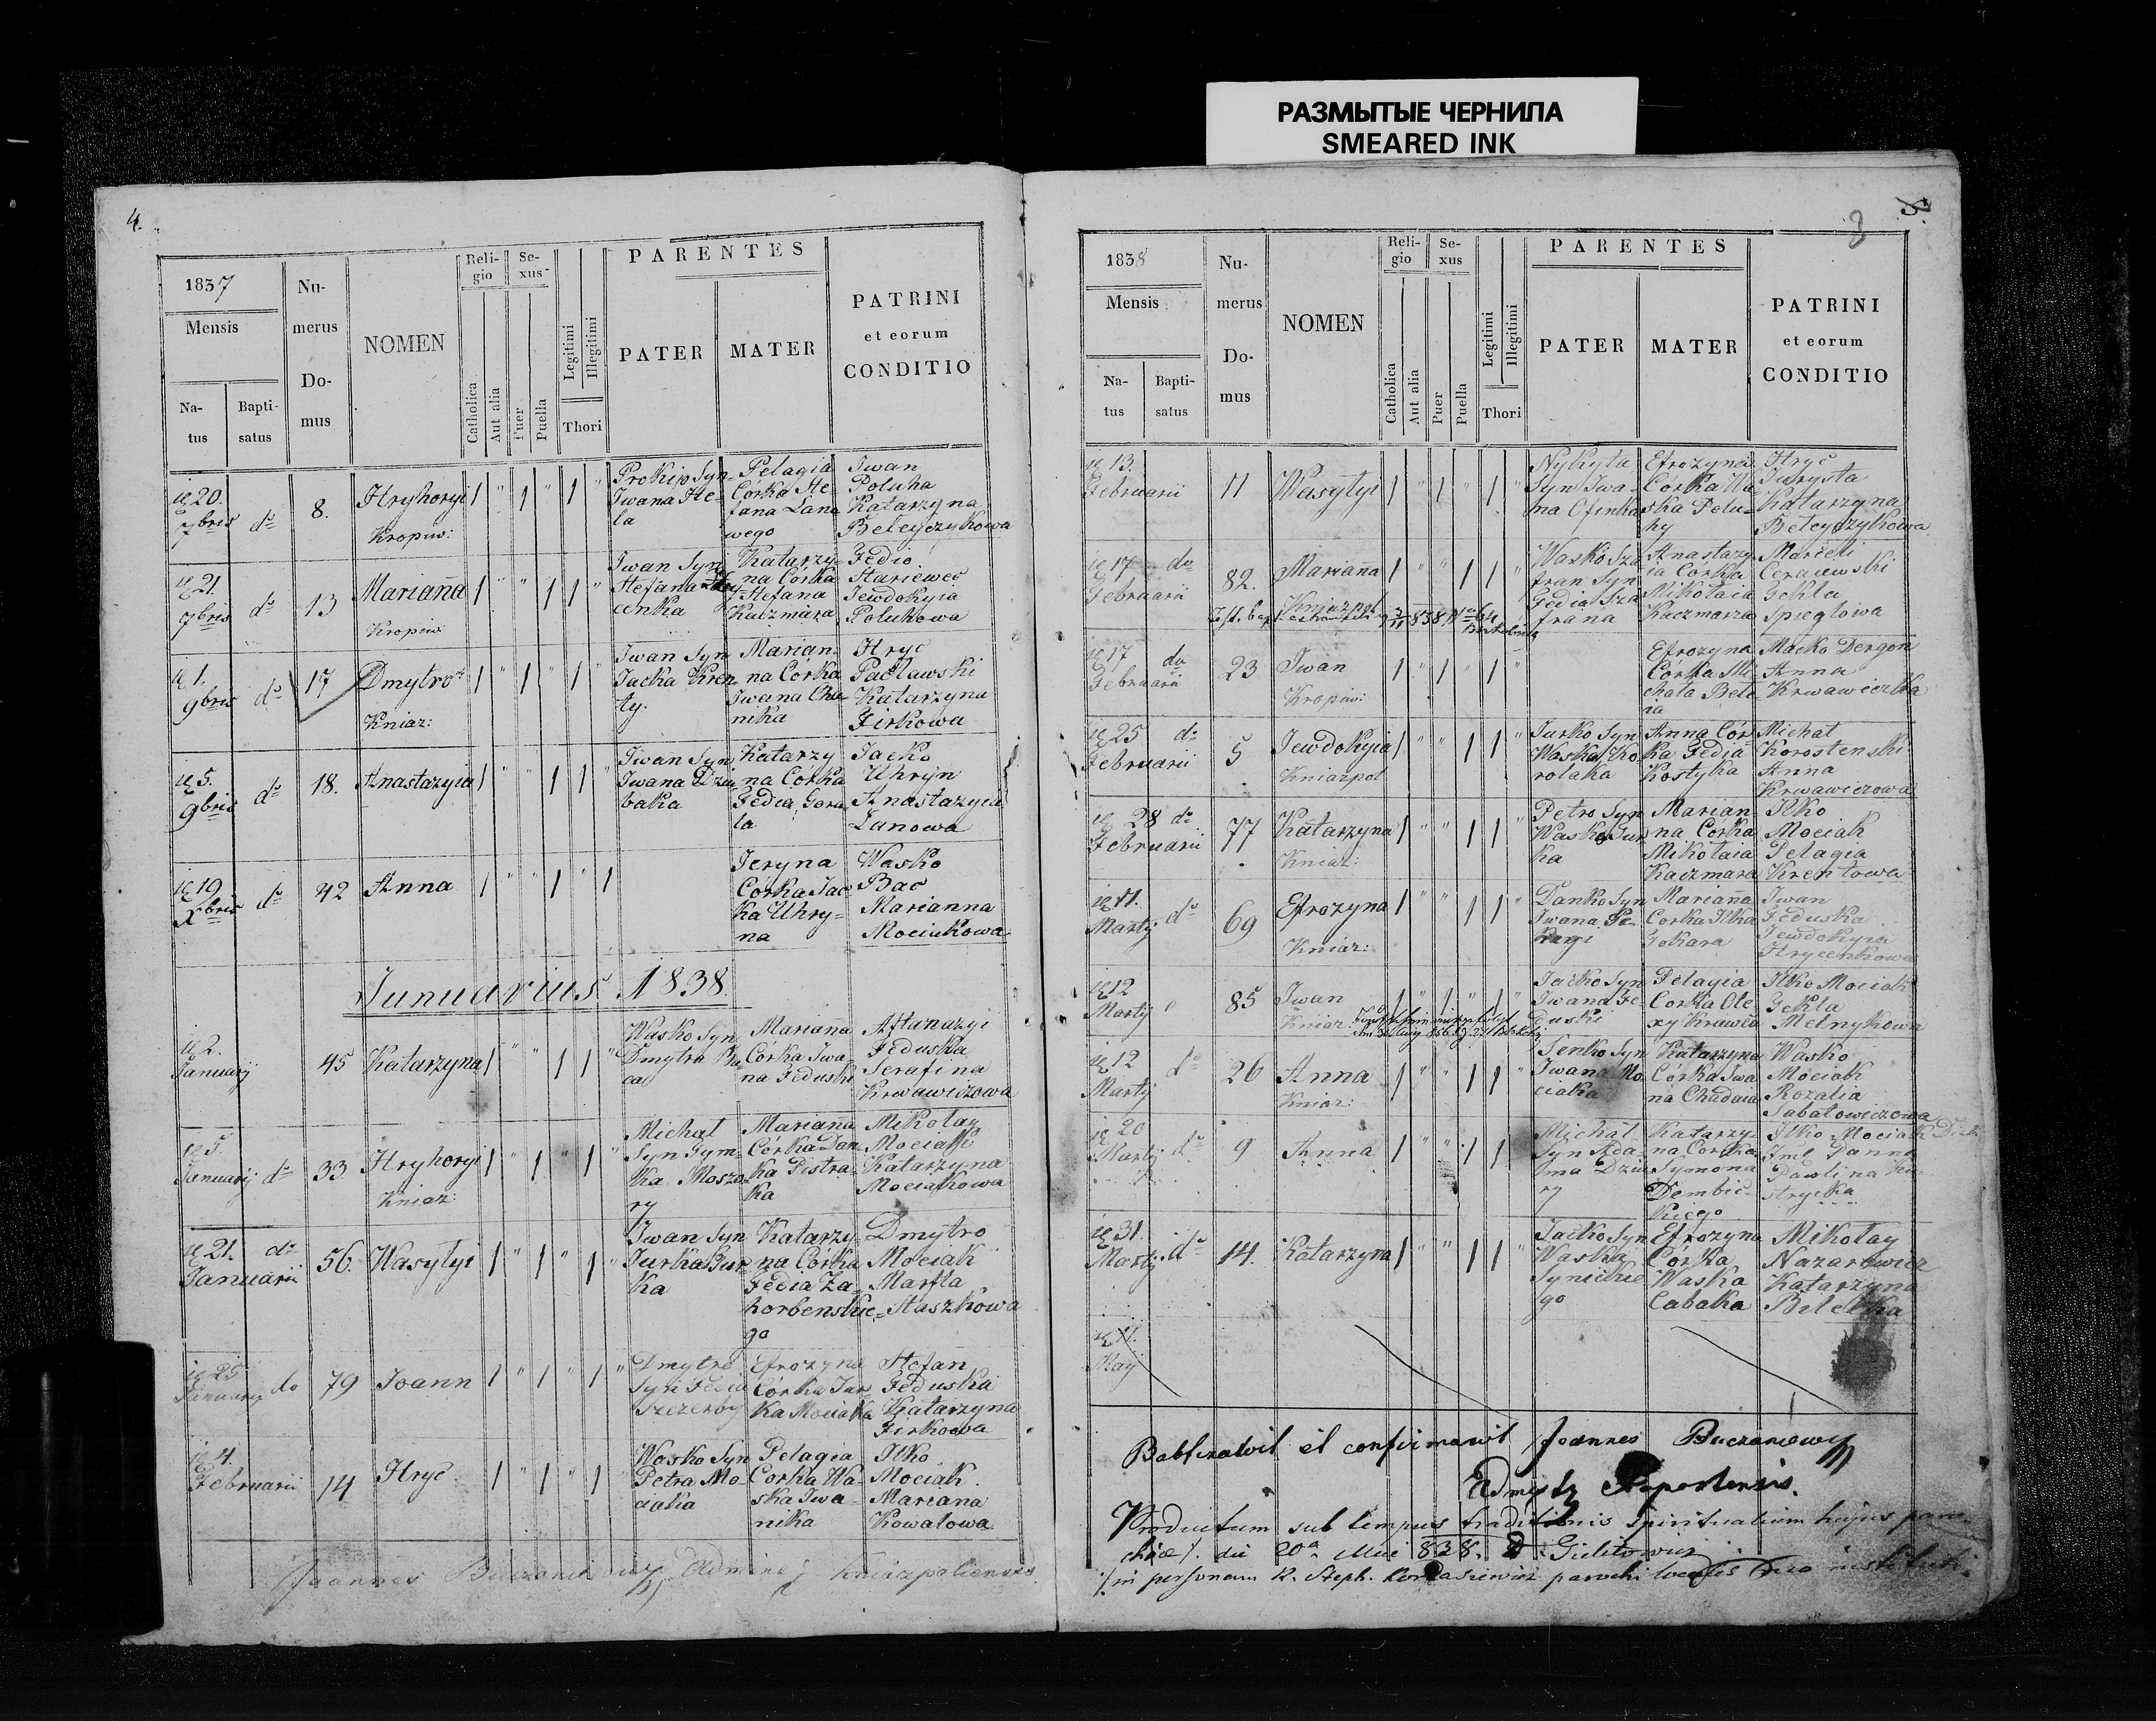 РАЗМЫТЫЕ ЧЕРНИЛА
SMEARED INK
4.
1837
Mensis
Na-
tus
Bapti-
satus
Nu-
merus
Do-
mus
NOMEN
Reli-
gio
Catholica
Aut alia
Se-
xus
Puer
Puella
Legitimi
Illegitimi
Thori
PARENTES
PATER
MATER
PATRINI
et eorum
CONDITIO
20.
7bris
do
8.
Hryhoryi
Kropiw:
1 " 1 " 1 "
Prokip Syn
Iwana Ste-
la
Pelagia
Córka Ste
fana Lana
wego
Iwan
Poluha
Katarzyna
Beleyczykowa
21.
7bris
do
13
Marianna
Kropiw:
1 " " 1 1 "
Iwan Syn
Stefana
cenka
Katarzy-
na Córka
Stefana
Kaczmara
Fedio
Stariewec
Jewdokyia
Polukowa
1.
9bris
do
17
Dmytro
Kniaz:
1 " 1 " 1 "
Iwan Syn
Jacka Kren
ty.
Marian-
na Córka
Iwana Cha-
nika
Hryc
Paclawski
Katarzyna
Firkowa
5.
9bris
do
18.
Anastazyia
1 " " 1 1 "
Iwan Syn
Iwana Dziu
baka
Katarzy
na Córka
Fedia Gora
la
Jacko
Uhryn
Anastazyia
Lanowa
19
Xbris
do
42
Anna
1 " " 1 " 1
Jeryna
Córka Jac
ka Uhry-
na
Wasko
Bac
Marianna
Mociukowa
Januarius 1838
2.
January
45
Katarzyna
1 " " 1 1 "
Wasko Syn
Dmytra Ba
ca
Marianna
Córka Iwa-
na Feduski
Aftanazyi
Feduska
Serafina
Krwawiczowa
5.
January
do
33
Hryhoryi
Kniaz:
1 " 1 " 1 "
Michal
Syn Tym-
ka Moszo
ry
Marianna
Córka Dan
ka Pistra-
ka
Mikolay
Mociak
Katarzyna
Mociakowa
21.
Januarii
do
56.
Wasylyi
1 " 1 " 1 "
Iwan Syn
Jurka Bur
ka
Katarzy-
na Córka
Fedia Za-
horbenskie-
go
Dmytro
Mociak
Marfta
Staszkowa
25
January
do
79
Joann
1 " 1 " 1 "
Dmytro
Syn Fedia
Szczerby
Efrozyna
Córka Jac-
ka Mociaka
Stefan
Feduska
Katarzyna
Firkowa
4.
Februarii
14
Hryć
1 " 1 " 1
Wasko Syn
Petra Mo
ciaka
Pelagia
Corka Wa-
ska Iwa-
nika
Ilko
Mociak.
Mariana
Kowalowa
Joannes Adminr Kniazpoliensis
3
5.
1838
Mensis
Na-
tus
Bapti-
satus
Nu-
merus
Do-
mus
NOMEN
Reli-
gio
Catholica
Aut alia
Se-
xus
Puer
Puella
Legitimi
Illegitimi
Thori
PARENTES
PATER
MATER
PATRINI
et eorum
CONDITIO
13.
Februarii
11
Wasylyi
1 " 1 " 1 "
Nykyta
Syn Iwa-
na
Efrozyna
Corka Wa
ska Polu-
hy
Hryc
Jurysta
Katarzyna
Beleyczykowa
17
Februarii
do
82.
Marianna
Kniazpol
1 " " 1 1 "
Wasko Sza
fran Syn
Fedia Sza
frana
Anastazy-
ia Córka
Mikolaia
Kaczmarza
Marceli
Cerajewski
Tekla
Spieglowa
17
Februarii
do
23
Iwan
Kropiw:
1 " 1 " 1 "
Efrozyna
Córka Mi
chala Bele
ia
Macko Dergon
Anna
Krwawiczka
25
Februarii
do
5
Jewdokyia
Kniazpol
1 " " 1 1 "
Jurko Syn
Waska Ko
rolaka
Anna Cór-
ka Fedia
Kostyka
Michal
Korostenski
Anna
Krwawiczowa
28
Februarii
do
77
Katarzyna
Kniaz:
1 " " 1 1 "
Petro Syn
Waska Bur
ka
Marian-
na Córka
Mikolaia
Kaczmara
Ilko
Mociak
Pelagia
Krentowa
11.
Marty
do
69
Efrozyna
Kniaz:
1 " " 1 1 "
Danko Syn
Iwana
Marianna
Corka Ilka
Tokara
Iwan
Feduska
Jewdokyia
Hrycenkowa
12
Marty
85
Iwan
Kniaz:
1 " 1 " 1 "
Jacko Syn
Iwana Fe-
duski
Pelagia
Corka Ole-
xy Krawca
Ilko Mociak
Tekla
Melnykowa
12
Marty
do
26
Anna
Kniaz:
1 " " 1 1 "
Senko Syn
Iwana Mo
ciaka
Katarzyna
Córka Iwa
na Chudaia
Wasko
Mociak
Rozalia
Sabatowiczowa
20
Marty
do
9
Anna
1 " " 1 1
Michal
Syn Ada-
ma Dziu
ry
Katarzy-
na Corka
Symona
Dembic-
kiego
Ilko Mociak
Panna
Paolina
31.
Marty
do
14.
Katarzyna
1 " " 1 1 "
Jacko Syn
Waska
Synickie
go
Efrozyna
Córka
Waska
Cabaka
Mikolay
Nazarowicz
Katarzyna
Bilecka
May
Babtizawit et confirmawit Joannes
Productum sub tempus traditionis spiritualium hujus paro-
chiae ./. die 20a Maii 838.
./. in personam R. Steph. parochi